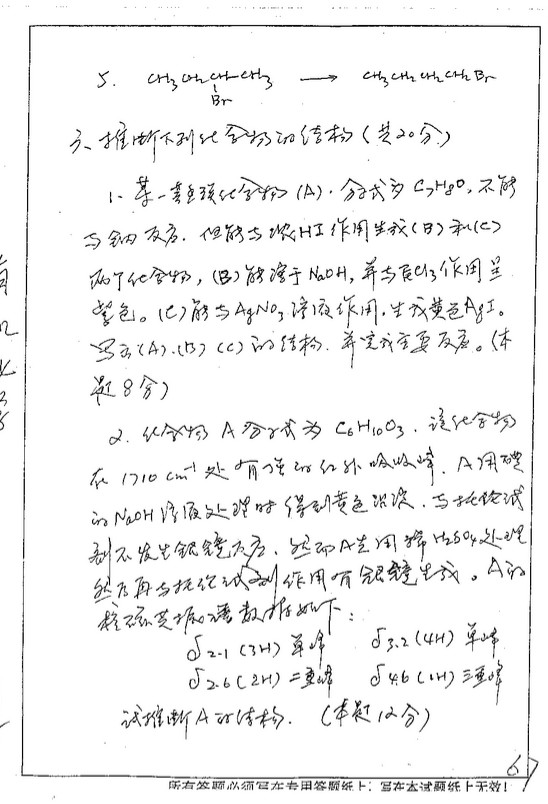 5. CH3CH2CHCH3 → CH3CH2CH2CH2Br
Br
六、推断下列化合物的结构(共20分)
1. 某一类重要化合物(A). 分子式为 C7H8O, 不能
与钠反应. 但能与浓HI作用生成(B)和(C)
两个化合物, (B)能溶于NaOH, 并与FeCl3作用呈
紫色。(C)能与AgNO3溶液作用, 生成黄色AgI。
写出(A).(B) (C)的结构. 并完成主要反应。(本
题8分)
2. 化合物 A 分子式为 C6H10O3. 该化合物
在1710 cm-1处有强的红外吸收峰. A用碘
的NaOH溶液处理时得到黄色沉淀. 与托伦试
剂不发生银镜反应. 然而A先用稀H2SO4处理
然后再与托伦试剂作用有银镜生成。A的
核磁共振谱数据如下:
δ2.1 (3H) 单峰 δ3.2 (4H) 单峰
δ2.6 (2H) 二重峰 δ4.6 (1H) 三重峰
试推断A的结构. (本题12分)
67
所有答题必须写在专用答题纸上; 写在本试题纸上无效!